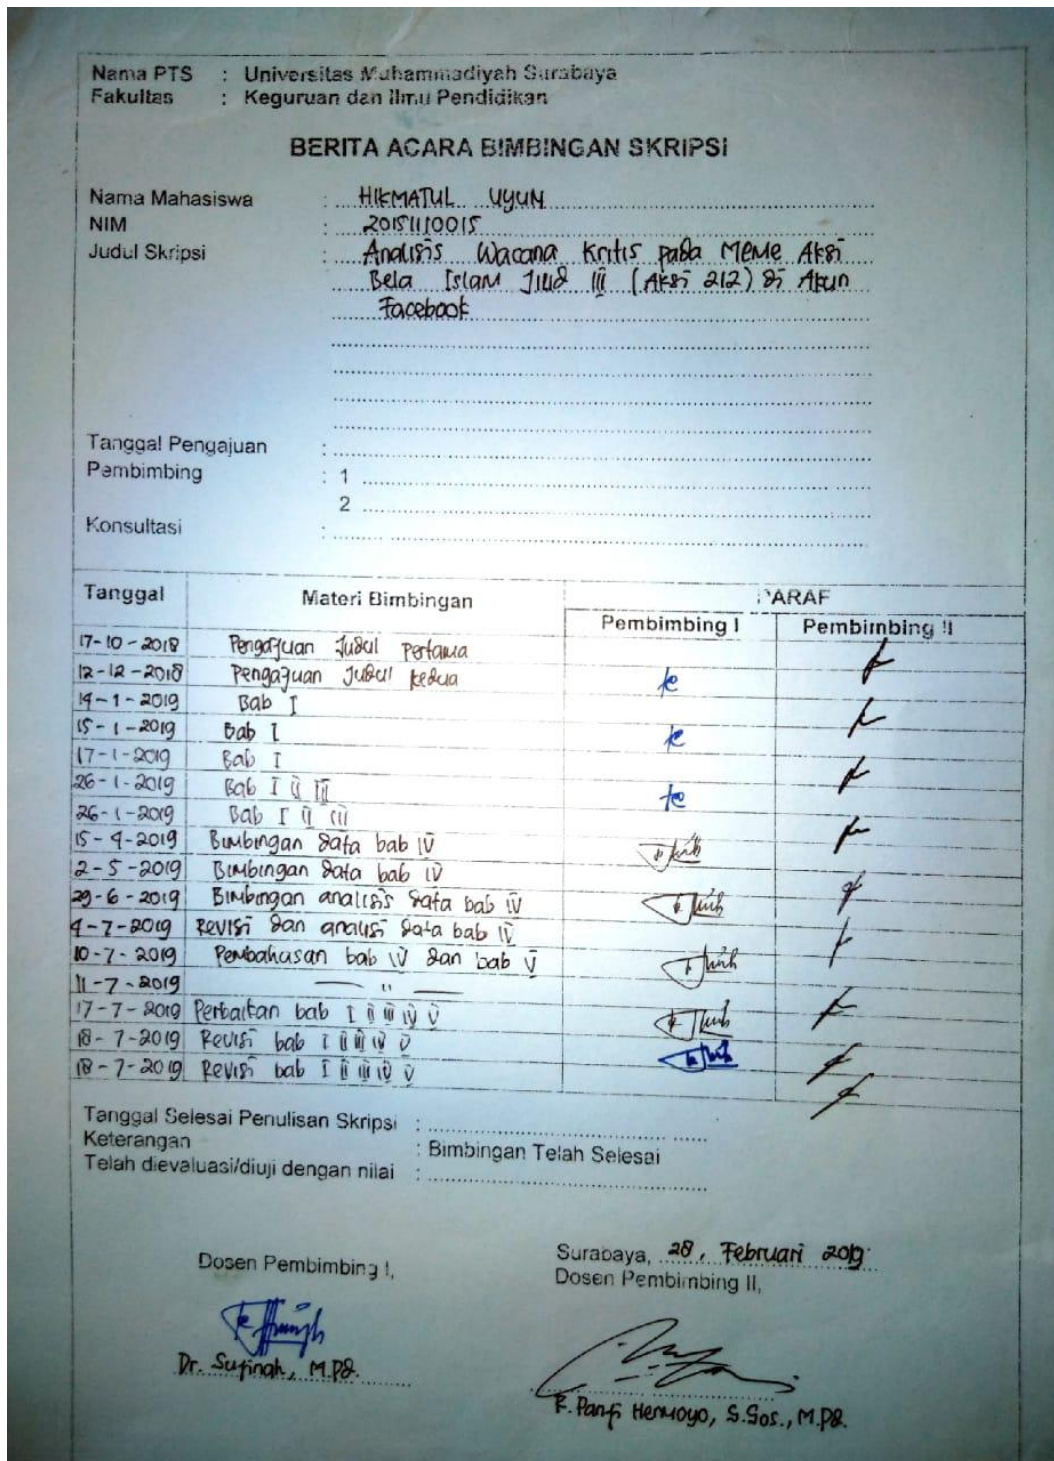 Nama PTS : Universitas Muhammadiyah Surabaya
Fakultas : Keguruan dan Ilmu Pendidikan
BERITA ACARA BIMBINGAN SKRIPSI
Nama Mahasiswa : HIKMATUL UYUN
NIM : 20151110015
Judul Skripsi : Analisis Wacana Kritis pada Meme Aksi
Bela Islam Jilid III (Aksi 212) di Akun
Facebook
Tanggal Pengajuan :
Pembimbing : 1
2
Konsultasi :
Tanggal Materi Bimbingan PARAF
Pembimbing I Pembimbing II
17-10-2018 Pengajuan Judul pertama
12-12-2018 Pengajuan Judul kedua
14-1-2019 Bab I
15-1-2019 Bab I
17-1-2019 Bab I
26-1-2019 Bab I II III
26-1-2019 Bab I II III
15-4-2019 Bimbingan data bab IV
2-5-2019 Bimbingan data bab IV
29-6-2019 Bimbingan analisis data bab IV
4-7-2019 Revisi dan analisi data bab IV
10-7-2019 Pembahasan bab IV dan bab V
11-7-2019 — " —
17-7-2019 Perbaikan bab I II III IV V
18-7-2019 Revisi bab I II III IV V
18-7-2019 Revisi bab I II III IV V
Tanggal Selesai Penulisan Skripsi :
Keterangan : Bimbingan Telah Selesai
Telah dievaluasi/diuji dengan nilai :
Surabaya, 28, Februari 2019
Dosen Pembimbing I, Dosen Pembimbing II,
Dr. Sujinah, M.Pd.
R. Panji Hermoyo, S.Sos., M.Pd.